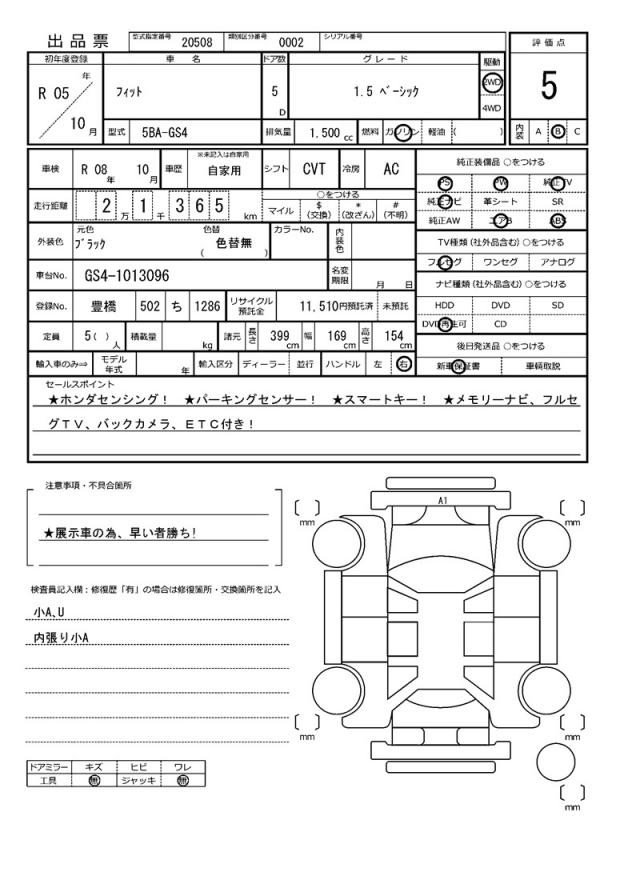 出品票 型式指定番号 20508 類別区分番号 0002 シリアル番号
評価点
初年度登録 車名 ドア数 グレード 駆動
R 05 年 10 月 フィット 5 D 1.5 ベーシック 2WD 4WD 5
型式 5BA-GS4 排気量 1.500 cc 燃料 ガソリン 軽油 ( ) 内装 A B C
車検 R 08 年 10 月 車歴 ※未記入は自家用 自家用 シフト CVT 冷房 AC
純正装備品 ○をつける
PS PW 純正TV
純正ナビ 革シート SR
純正AW エアB ABS
走行距離 2 万 1 千 3 6 5 km ○をつける
マイル $ (交換) * (改ざん) # (不明)
外装色 元色 ブラック 色替 色替無 ( ) カラーNo. 内装色
TV種類 (社外品含む) ○をつける
フルセグ ワンセグ アナログ
車台No. GS4-1013096 名変期限 月 日
ナビ種類 (社外品含む) ○をつける
HDD DVD SD
DVD再生可 CD
登録No. 豊橋 502 ち 1286 リサイクル預託金 11,510円預託済 未預託
定員 5 ( ) 人 積載量 kg 諸元 長さ 399 cm 幅 169 cm 高さ 154 cm
後日発送品 ○をつける
新車保証書 車輌取説
輸入車のみ⇒ モデル年式 年 輸入区分 ディーラー 並行 ハンドル 左 右
セールスポイント
★ホンダセンシング! ★パーキングセンサー! ★スマートキー! ★メモリーナビ、フルセ
グTV、バックカメラ、ETC付き!
注意事項・不具合箇所
★展示車の為、早い者勝ち!
検査員記入欄:修復歴「有」の場合は修復箇所・交換箇所を記入
小A、U
内張り小A
A1
mm
mm
mm
mm
mm
ドアミラー キズ ヒビ ワレ
工具 無 ジャッキ 無